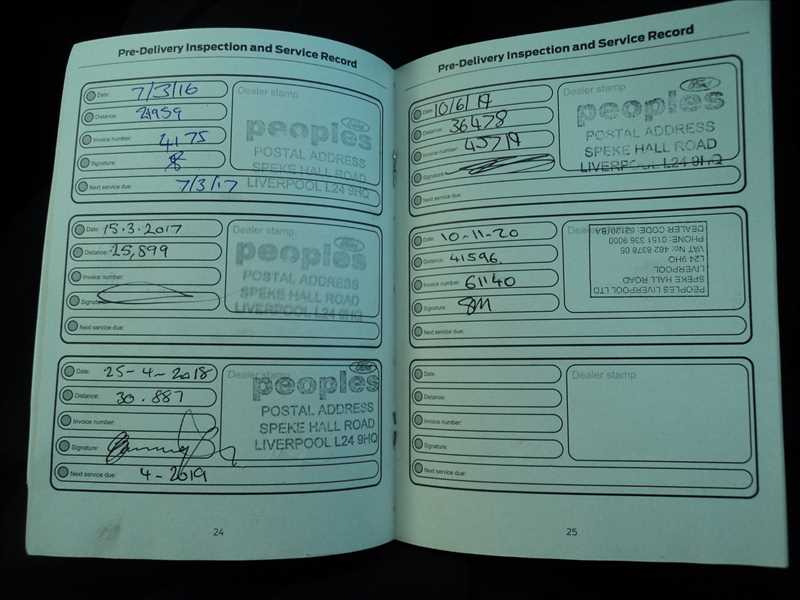 Pre-Delivery Inspection and Service Record
Date: 7/3/16
Distance:
Invoice number: 4175
Signature:
Next service due: 7/3/17
Dealer stamp
Ford
peoples
POSTAL ADDRESS
SPEKE HALL ROAD
LIVERPOOL L24 9HQ
Date: 15.3.2017
Distance: 25,899
Invoice number:
Signature:
Next service due:
Dealer stamp
Ford
peoples
POSTAL ADDRESS
SPEKE HALL ROAD
LIVERPOOL L24 9HQ
Date: 25-4-2018
Distance: 30.887
Invoice number:
Signature:
Next service due: 4-2019
Dealer stamp
Ford
peoples
POSTAL ADDRESS
SPEKE HALL ROAD
LIVERPOOL L24 9HQ
24
Pre-Delivery Inspection and Service Record
Date: 10/6/19
Distance: 36478
Invoice number:
Signature:
Next service due:
Dealer stamp
Ford
peoples
POSTAL ADDRESS
SPEKE HALL ROAD
LIVERPOOL L24 9HQ
Date: 10-11-20
Distance: 41596
Invoice number: 61140
Signature: SM
Next service due:
Dealer stamp
PEOPLES LIVERPOOL LTD
SPEKE HALL ROAD
LIVERPOOL
L24 9HQ
VAT No: 482 8378 05
PHONE: 0151 336 9000
DEALER CODE: 62120/BA
Date:
Distance:
Invoice number:
Signature:
Next service due:
Dealer stamp
25